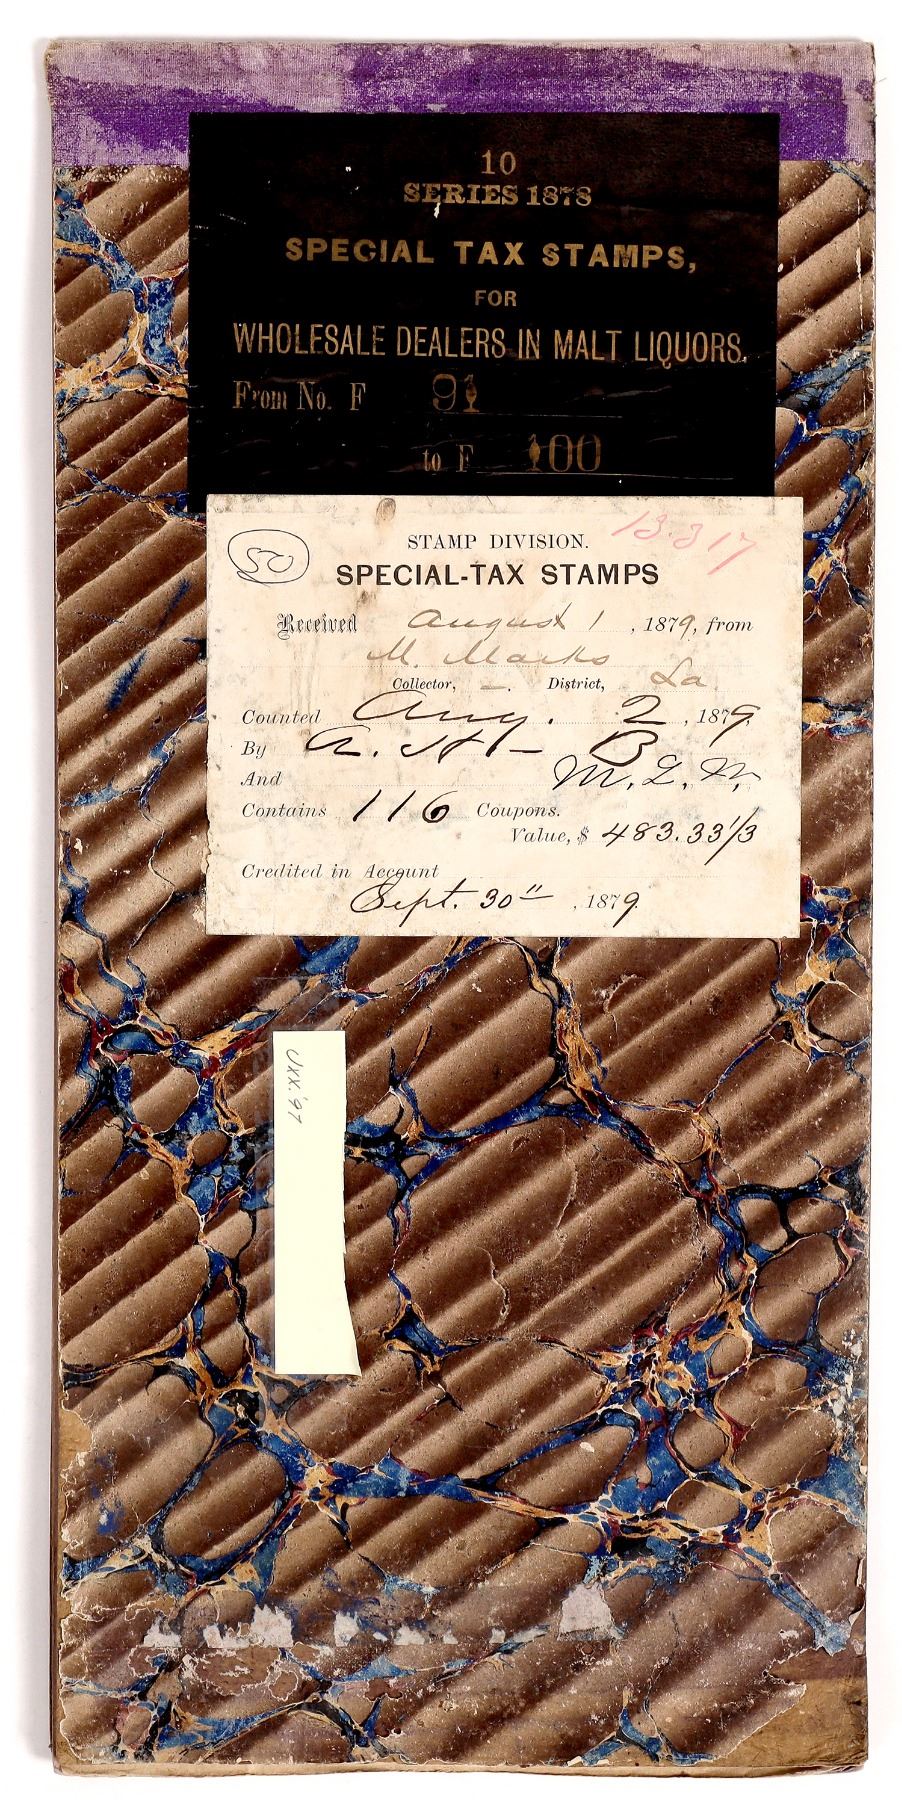 10
SERIES 1878
SPECIAL TAX STAMPS,
FOR
WHOLESALE DEALERS IN MALT LIQUORS.
From No. F 91
to F 100
50
13.317
STAMP DIVISION.
SPECIAL-TAX STAMPS
Received August 1, 1879, from
M. Marks
Collector, —. District, La
Counted Aug. 2, 1879,
By A. H– B
And M. L. N.
Contains 116 Coupons.
Value, $ 483.33 1/3
Credited in Account
Sept. 30", 1879.